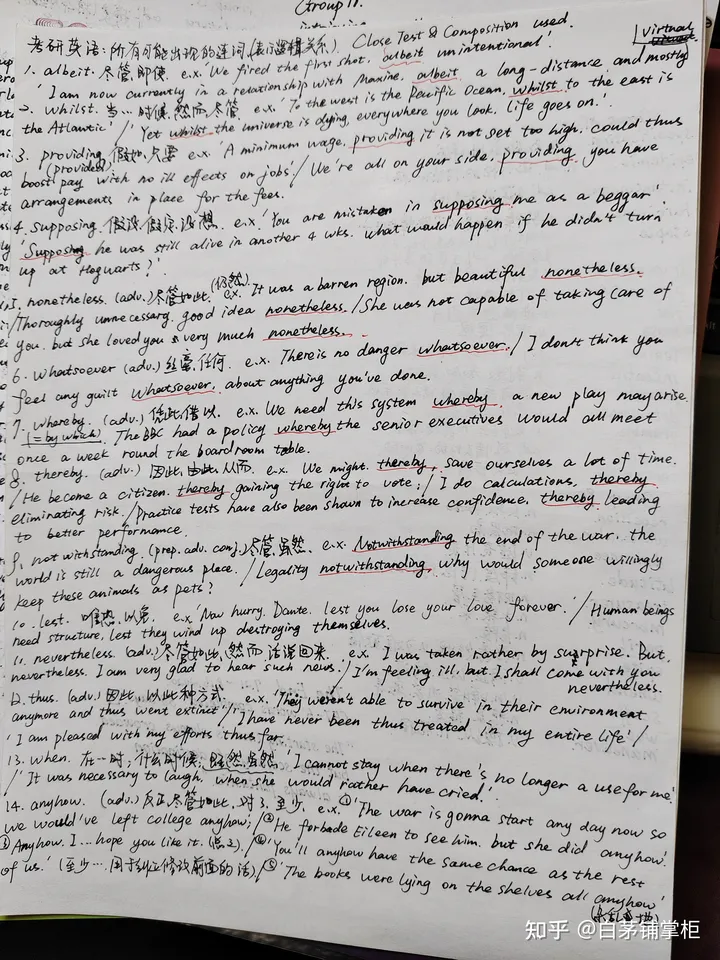 Group 17.
考研英语:所有可能出现的连词(表示逻辑关系). Close Test & Composition used.
1. albeit. 尽管,即使. e.x. 'We fired the first shot, albeit unintentional'. | virtual
'I am now currently in a relationship with Maxine, albeit a long-distance and mostly
2. whilst. 当…时候,然而,尽管. e.x. 'To the west is the Pacific Ocean, whilst to the east is
the Atlantic' / 'Yet whilst the universe is dying, everywhere you look, life goes on.'
3. providing (provided) 假如,只要 e.x. 'A minimum wage, providing it is not set too high, could thus
boost pay with no ill effects on jobs' / We're all on your side, providing you have
arrangements in place for the fees.
4. supposing. 假设,假定,设想. e.x. 'You are mistaken in supposing me as a beggar'.
'Supposing he was still alive in another 4 wks. what would happen if he didn't turn
up at Hogwarts?'
nonetheless. (adv.) 尽管如此,(仍然) e.x. It was a barren region. but beautiful nonetheless.
/Thoroughly unnecessary. good idea nonetheless. / She was not capable of taking care of
you. but she loved you very much nonetheless.
6. whatsoever (adv.) 丝毫,任何. e.x. There is no danger whatsoever. / I don't think you
feel any guilt whatsoever, about anything you've done.
7. whereby. (adv.) 凭此,借以. e.x. We need this system whereby a new play may arise.
(= by which). The BBC had a policy whereby the senior executives would all meet
once a week round the boardroom table.
8. thereby. (adv.) 因此,由此,从而. e.x. We might thereby save ourselves a lot of time.
/He become a citizen. thereby gaining the right to vote. / I do calculations, thereby
eliminating risk. / practice tests have also been shown to increase confidence, thereby leading
to better performance.
9. not withstanding. (prep. adv. conj.) 尽管,虽然. e.x. Notwithstanding the end of the war, the
world is still a dangerous place. / Legality notwithstanding, why would someone willingly
keep these animals as pets?
10. lest. 唯恐,以免. e.x. 'Now hurry, Dante, lest you lose your love forever.' / Human beings
need structure, lest they wind up destroying themselves.
11. nevertheless. (adv.) 尽管如此,然而 话说回来. e.x. I was taken rather by surprise. But,
nevertheless. I am very glad to hear such news. / I'm feeling ill, but I shall come with you
nevertheless.
12. thus. (adv.) 因此,以此种方式. e.x. 'They weren't able to survive in their environment
anymore and thus went extinct' / 'I have never been thus treated in my entire life' /
'I am pleased with my efforts thus far.
13. when. 在…时,什么时候,既然,虽然. 'I cannot stay when there's no longer a use for me'.
/ 'It was necessary to laugh, when she would rather have cried.'
14. anyhow. (adv.) 反正,尽管如此,对了,至少. e.x. ① 'The war is gonna start any day now so
we would've left college anyhow; / ② He forbade Eileen to see him, but she did anyhow.'
③ Anyhow, I... hope you like it. / ④ 'You'll anyhow have the same chance as the rest
of us.' (至少… 用于纠正修改前面的话) / ⑤ 'The books were lying on the shelves all anyhow'
知乎 @白茅铺掌柜